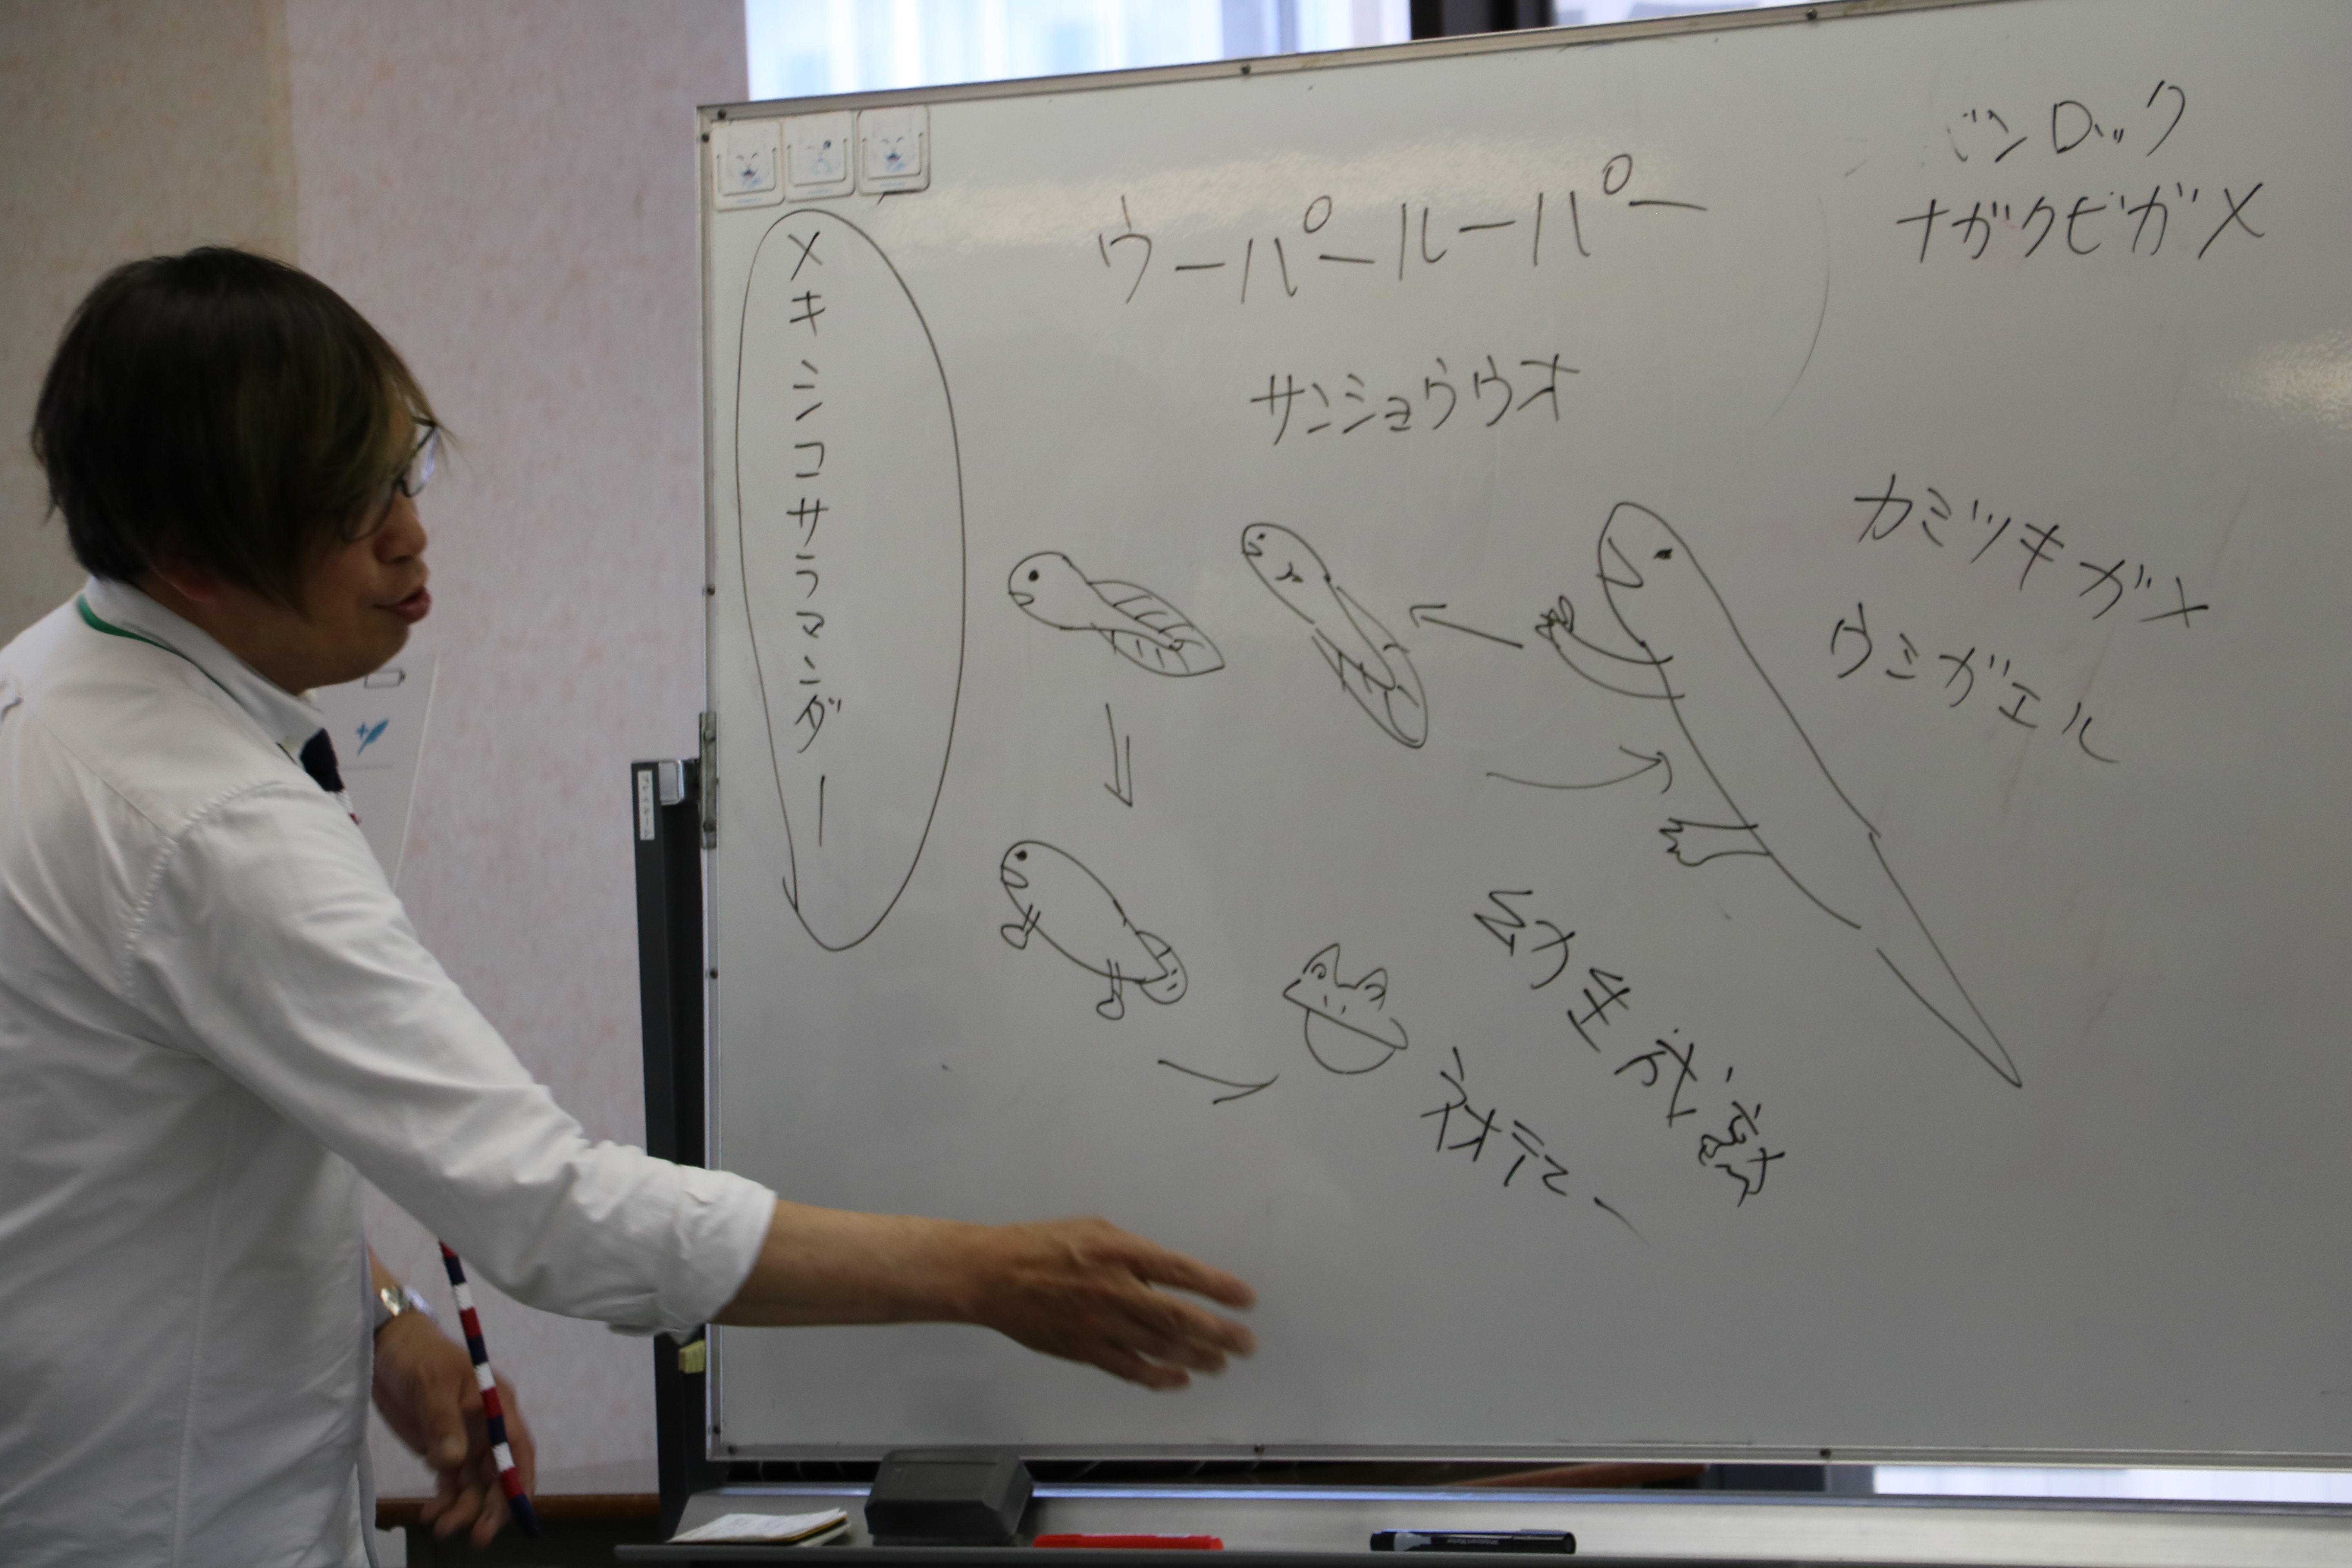 メキシコサラマンダー
ウーパールーパー
サンショウウオ
バンロック
ナガクビガメ
カミツキガメ
ウミガエル
幼生成熟
ネオテニー